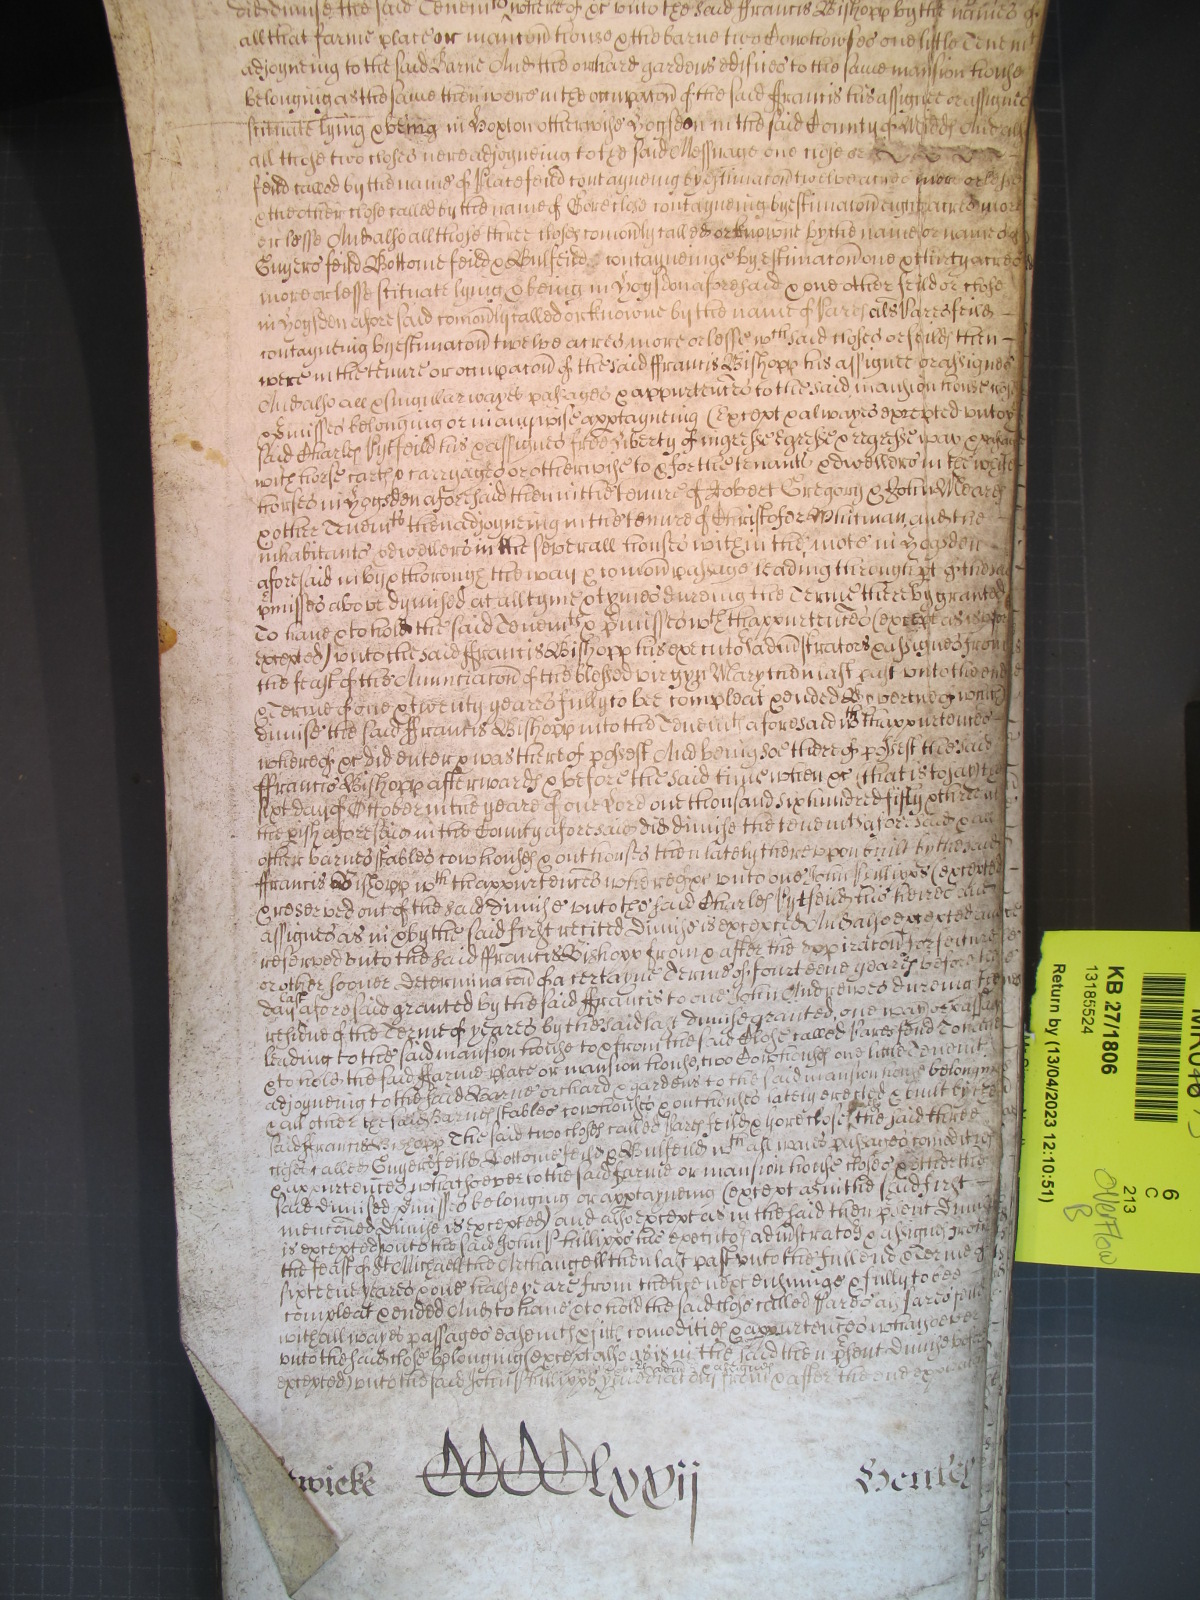 did dimise the said Tenemts whereof &c unto the said Ffrancis Bishopp by the names of
all that farme place or mancon house & the barne two Cowhowses one little Tenemt
adjoyneing to the said Barne And the orchard gardens edifices to the same mansion house
belonging as the same then were in the occupacon of the said Ffrancis his assignee or assignes
scituate lying & being in Hoxton otherwise Hogsdon in the said County of Midds And also
all those two closes nere adjoyneing to the said Messuage one close or
feild called by the name of Platefeild contayneing by estimacon twelve acres more or lesse
& the other close called by the name of Goreclose contayneing by estimacon eight acres more
or lesse And also all those three closes comonly called or knowne by the name or names of
Guyers feild Bottome feild & Bulfeild contayneinge by estimacon one & thirty acres
more or lesse scituate lying & being in Hogsdon aforesaid & one other feild or close
in Hogsden aforesaid comonly called or knowne by the name of Fares als Fares feild
contayneing by estimacon twelve acres more or lesse wth said closes or feilds then
were in the tenure or occupacon of the said Ffrancis Bishopp his assignee or assignes
And also all & singular wayes passages & appurtences to the said mansion house closes
& pmisses belonging or in any wise apptayneing (Except & alwayes excepted unto the
said Charles Pytfeild his & assignes free liberty of ingresse Egresse & regresse way & passage
with horse carts & carryages or otherwise to & for the tenants & dwellers in the
houses in Hogsden aforesaid then in the tenure of Robert Gregory & John Meares
& other Tenemts then adjoyneing in the tenure of Christofer Whitman and the
inhabitants & dwellers in the severall houses within the mote in Hogsden
aforesaid in by & thorough the way & comon passage leading through pt of the said
pmisses above dymised at all tyme & tymes dureing the Terme thereby granted
To have & to hold the said Tenemts & pmisses wth thappurtences (except as is before
excepted) unto the said Ffrancis Bishopp his executors administrators & assignes from
the feast of the Anunciacon of the blessed virgyn Mary then last past unto the end
& Terme of one & twenty yeares fully to be compleat & ended By vertue of which
dimise the said Ffrancis Bishopp into the Tenemts aforesaid wth thappurtences
whereof &c did enter & was thereof possest And being soe thereof possest the said
Ffrancis Bishopp afterwards & before the said time when &c (that is to say) the
sixt day of October in the yeare of our Lord one thousand six hundred fifty & three at
the pish aforesaid in the County aforesaid did dimise the tenemts aforesaid & all
other barnes stables cowhouses & outhouses then lately thereuppon built by the said
Ffrancis Bishopp wth thappurtences whereof &c unto one John Phillipps (excepted
& reserved out of the said dimise unto the said Charles Pytfeild his heires and
assignes as in & by the said first recited Dimise is excepted And also excepted and
reserved unto the said Ffrancis Bishopp from & after the expiracon forfeiture
or other sooner determinacon of a certayne Terme of fourteene yeares before the
day last aforesaid granted by the said Ffrancis to one John Andrewes dureing the
residue of the Terme of yeares by the said last dimise granted, one way or passage
leading to the said mansion house to & from the said Close called Fares feild To have
& to hold the said Ffarme place or mansion house, two Cowhouses one little Tenemt
adjoyneing to the said Barne orchard & gardens to the said mansion house belonging
& all other the said Barnes stables cowhouses & outhouses lately erected & built by the
said Francis Bishopp The said two closes called Parke feild & Gore close, the said three
closes called Guyers feild Bottome feild & Bulfeild wth all waies passages comodities
& appurtences whatsoever to the said farme or mansion house closes & other the
said dimised pmisses belonging or apptayneing (except as in the said first
mencioned Dimise is excepted) and also except as in the said then psent Dimise
is excepted unto the said John Phillipps his executors administrators & assignes from
the feast of St Michaell the Archangell then last past unto the full end & Terme of
sixteene yeares & one halfe yeare from thence next ensuinge & fully to bee
compleat & ended And to have & to hold the said close called Fares als Fares feild
with all wayes passages easemts & comodities & appurtences whatsoever
unto the said close belonging (except also as is in the said then psent dimise before
excepted) unto the said John Phillipps his executors admrs & assignes from & after the end
wicke CCCClxxij Henley
KB 27/1806
13185524
Return by (13/04/2023 12:10:51)
6
C
213
Overflow
B